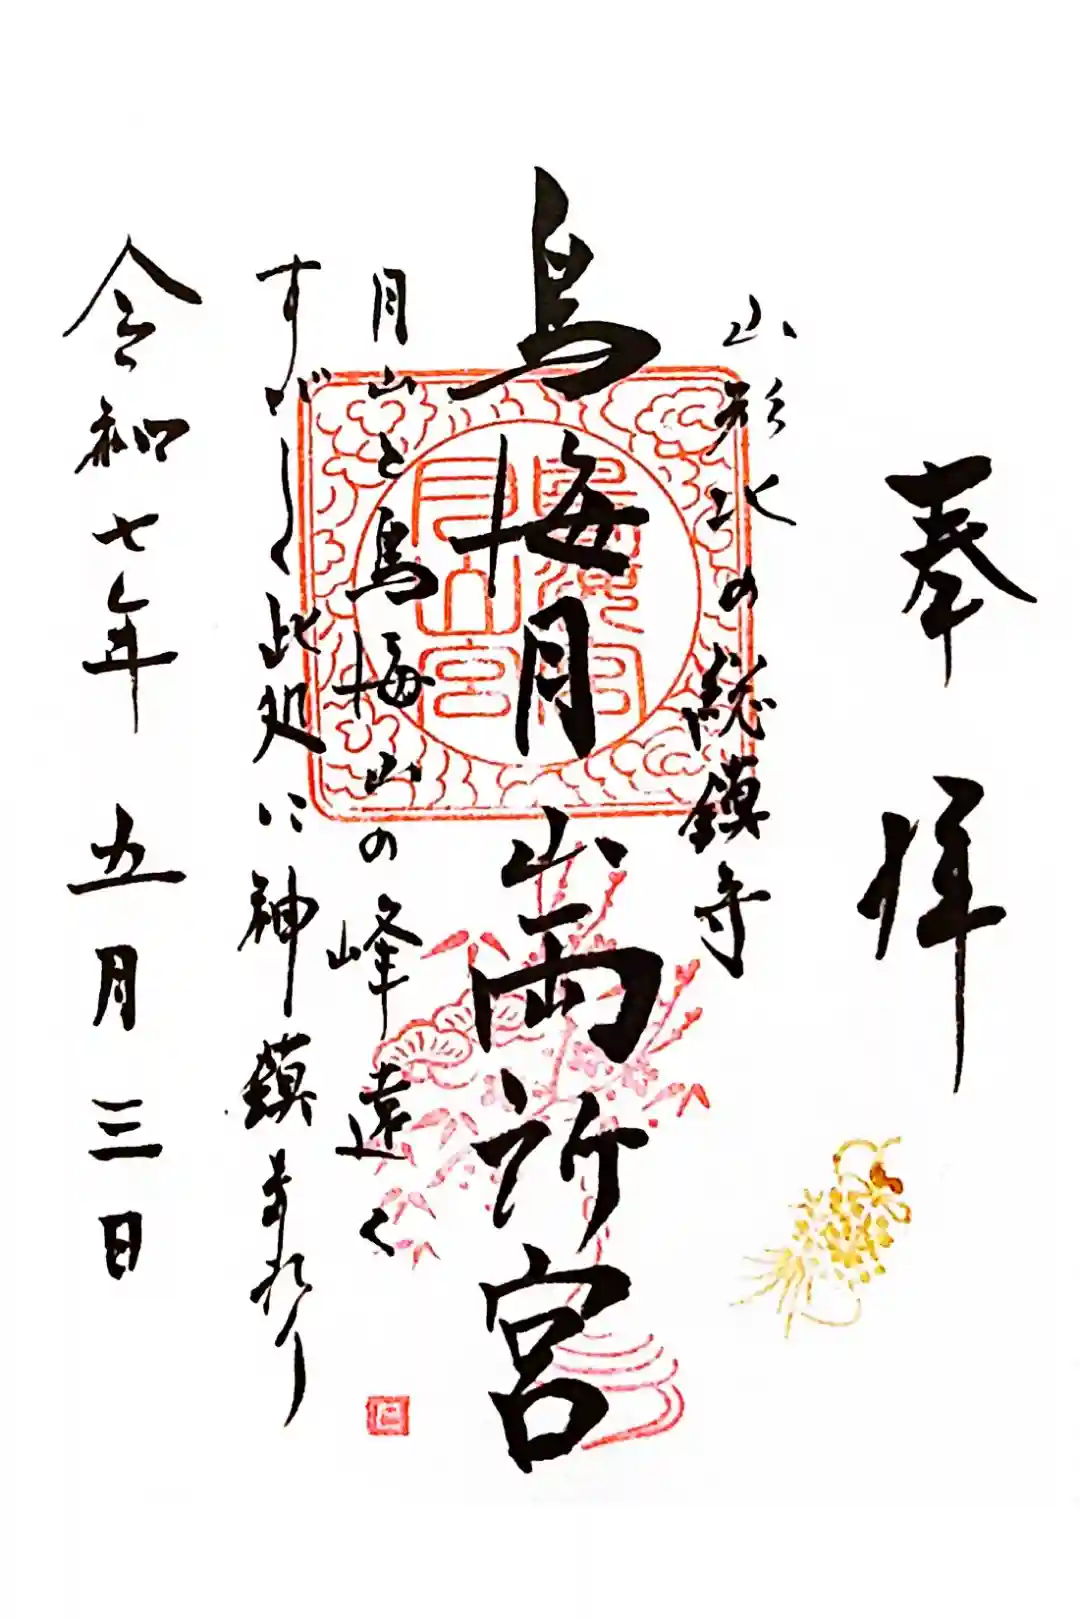 奉拝
山形北の総鎮守
鳥海月山両所宮
月山と鳥海山の峰遠く
すがしく此処に神鎮まれり
令和七年五月三日
鳥海宮
月山宮